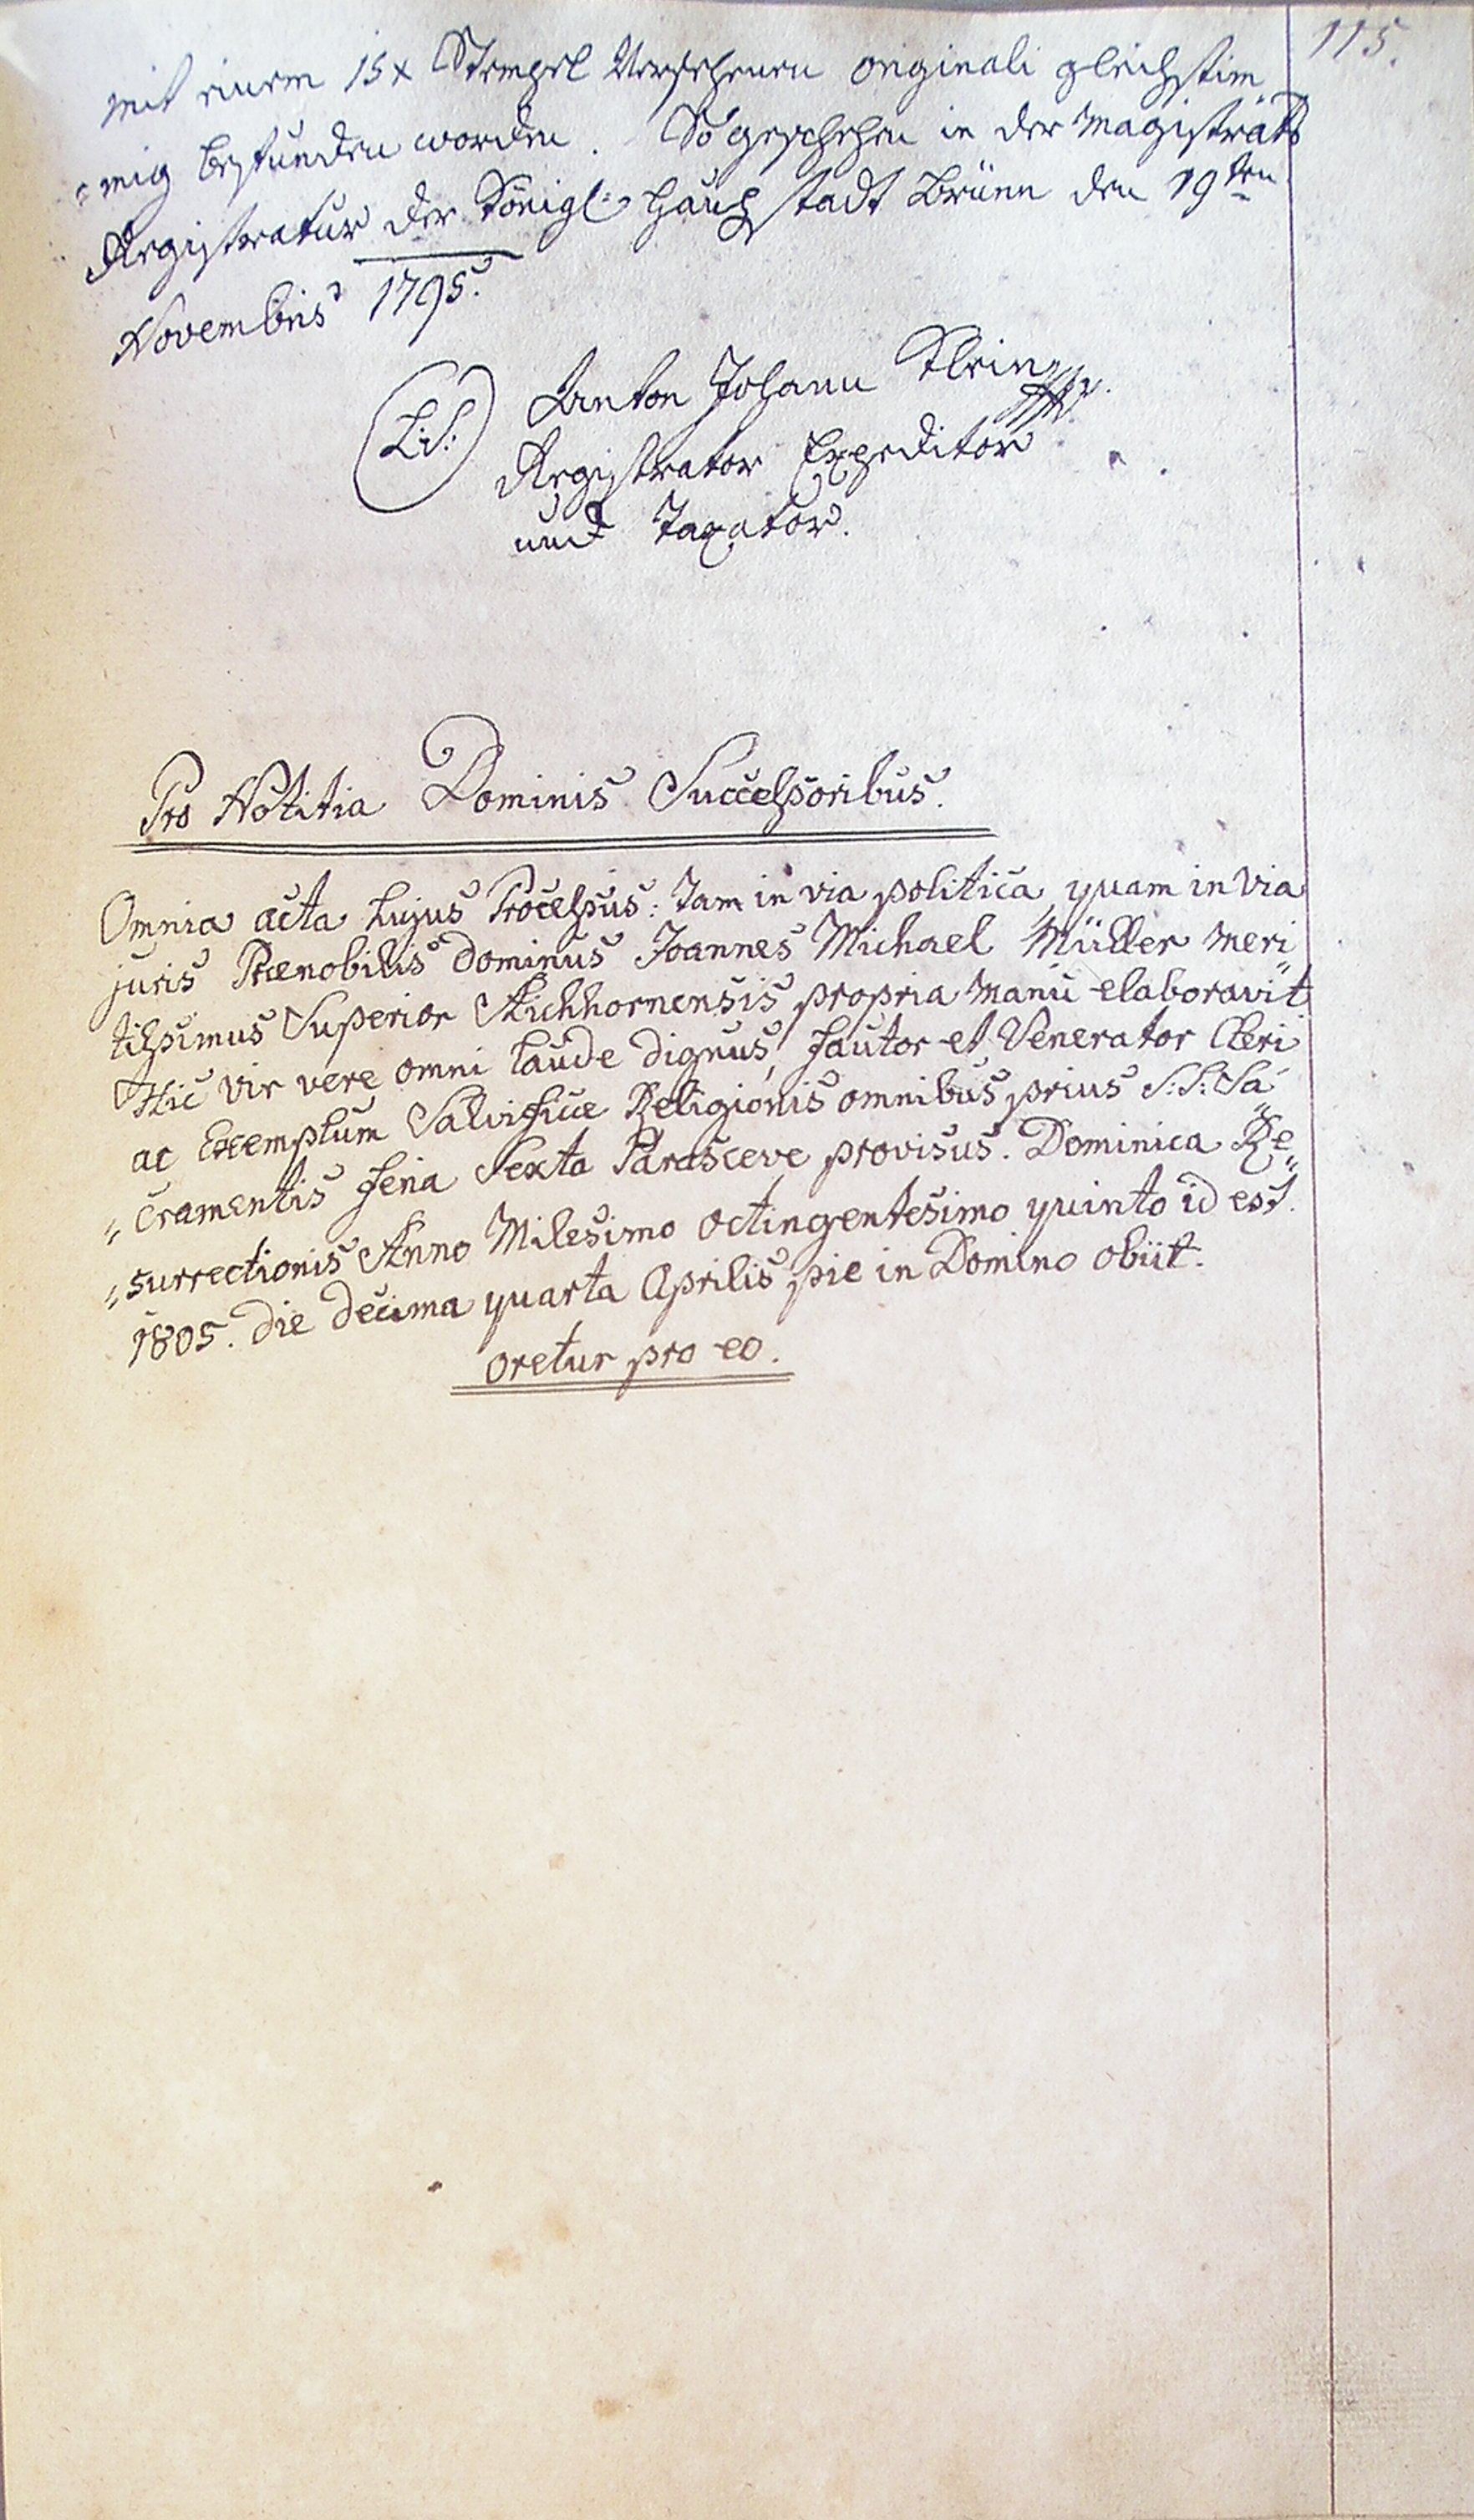 115.
mit einem 15x Stempel Versehenen originali gleichstim
"mig befunden worden. So geschehen in der Magistrats
Registratur der Königl: Haupt stadt Brünn den 19ten
Novembris 1795.
(L:S:) Anton Johann Klein
Registrator Expeditor
und Taxator.
Pro Notitia Dominis Successoribus.
Omnia acta hujus Processus: Tam in via politica, quam in Via
juris Prænobilis Dominus Joannes Michael Müller Meri
tissimus Superior Aichhornensis propria Manu elaboravit
Hic Vir vere omni laude dignus, fautor et Venerator Cleri
ac Exemplum Salvificæ Religionis omnibus prius S:S: Sa"
"cramentis feria Sexta Parasceve provisus. Dominica Re"
"surrectionis Anno Milesimo octingentesimo quinto id est.
1805. Die decima quarta Aprilis pie in Domino obiit.
Oretur pro eo.